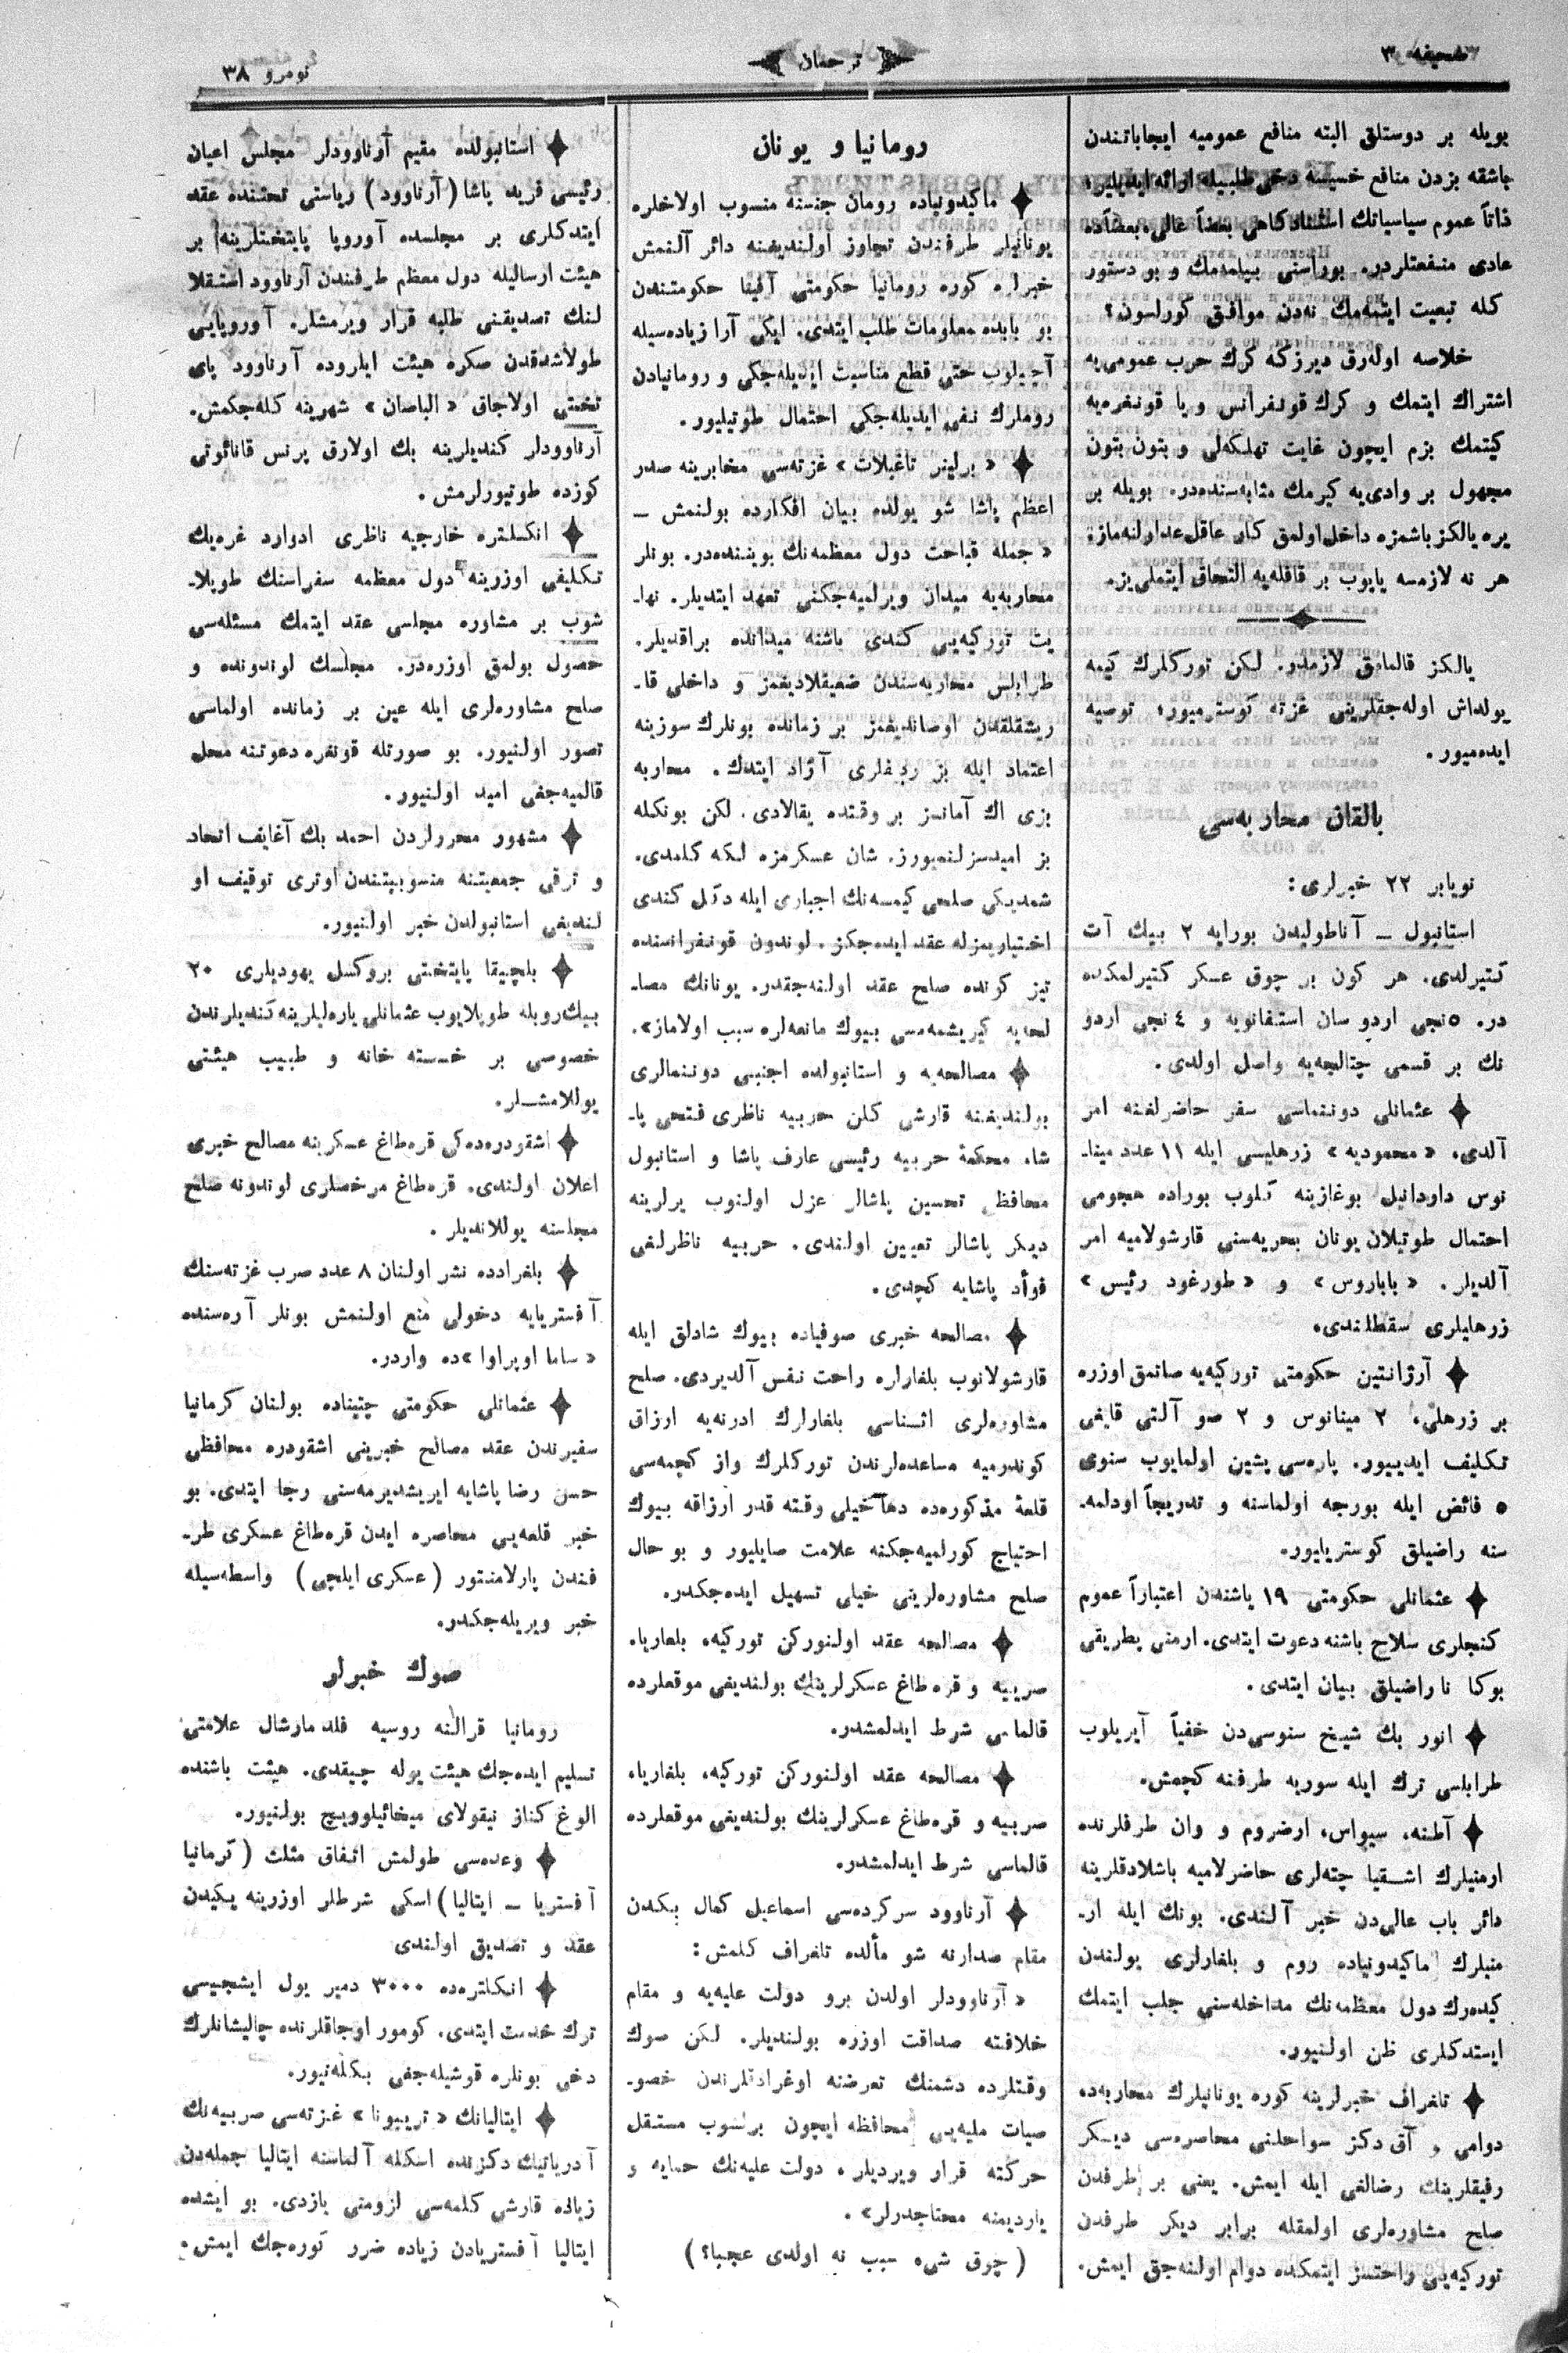 صحیفه ٣
ترجمان
نومرو ٣٨
بویله بر دوستلق البته منافع عمومیه ایجاباتندن
باشقه بزدن منافع خسیسه دخی طلبیله ارائه ایدیلیر؛
ذاتاً عموم سیاسیاتك استنادکاهی بعضاً عالی، بعضاًده
عادی منفعتلردر. بوراسنی بیلمه‌مك و بو دستور
کله تبعیت ایتمه‌مك نه‌دن موافق کورلسون؟
خلاصه اوله‌رق دیرزکه کرك حرب عمومی‌یه
اشتراك ایتمك و کرك قونفرانس ویا قونغره‌یه
کیتمك بزم ایچون غایت تهلکه‌لی و بتون بتون
مجهول بر وادی‌یه کیرمك مثابه‌سنده‌در. بویله بر
یره یالکز باشمزه داخل اولمق کار عاقل عد اولنه‌ماز؛
هر نه لازمسه یاپوب بر قافله‌یه التحاق ایتملی‌یز.
یالکز قالمامق لازمدر. لکن تورکلرك کیمه
یولداش اوله‌جقلرینی غزته کوسترمیور؛ توصیه
ایده‌میور.
بالقان محاربه‌سی
نویابر ٢٢ خبرلری:
استانبول ــ آناطولیدن بورایه ٢ بیك آت
کتیرلدی. هر کون بر چوق عسکر کتیرلمکده
در. ٥ نجی اردو سان استفانویه و ٤ نجی اردو
نك بر قسمی چتالجه‌یه واصل اولدی.
عثمانلی دوننماسی سفر حاضرلغنه امر
آلدی. «محمودیه» زرهلیسی ایله ١١ عدد مینا-
نوس داردانیل بوغازینه کلوب بوراده هجومی
احتمال طوتیلان یونان بحریه‌سنی قارشولامیه امر
آلدیلر. «بابا‌روس» و «طورغود رئیس»
زرهلیلری سقطلندی.
آرژانتین حکومتی تورکیه‌یه صاتمق اوزره
بر زرهلی، ٢ مینانوس و ٢ صو آلتی قایغی
تکلیف ایدییور. پاره‌سی پشین اولمایوب سنوی
٥ فائض ایله بورجه اولماسنه و تدریجاً اودلمه-
سنه راضیلق کوستریلیور.
عثمانلی حکومتی ١٩ یاشندن اعتباراً عموم
کنجلری سلاح باشنه دعوت ایتدی. ارمنی پطریقی
بوکا ناراضیلق بیان ایتدی.
انور بك شیخ سنوسی‌دن خفیاً آیریلوب
طرابلسی ترك ایله سوریه طرفنه کچمش.
آطنه، سیواس، ارضروم و وان طرفلرنده
ارمنیلرك اشقیا چته‌لری حاضرلامیه باشلادقلرینه
دائر باب عالی‌دن خبر آلندی. بونك ایله ار-
منیلرك ماکیدونیاده روم و بلغارلری یولندن
کیده‌رك دول معظمه‌نك مداخله‌سنی جلب ایتمك
ایستدکلری ظن اولنیور.
تلغراف خبرلرینه کوره یونانیلرك محاربه‌ده
دوامی و آق دکز سواحلنی محاصره‌سی دیکر
رفیقلرینك رضالغی ایله ایمش. یعنی بر طرفدن
صلح مشاوره‌لری اولمقله برابر دیکر طرفدن
تورکیه‌یی راحتسز ایتمکده دوام اولنه‌جق ایمش.
رومانیا و یونان
ماکیدونیاده رومان جنسنه منسوب اولاخلره
یونانیلر طرفندن تجاوز اولندیغنه دائر آلنمش
خبرلره کوره رومانیا حکومتی آفینا حکومتندن
بو بابده معلومات طلب ایتدی. ایکی آرا زیاده‌سیله
آچیلوب حتی قطع مناسبت ایدیله‌جکی و رومانیادن
روملرك نفی ایدیله‌جکی احتمال طوتیلیور.
«برلینر تاغبلات» غزته‌سی مخابرینه صدر
اعظم پاشا شو یولده بیان افکارده بولنمش ــ
«جمله قباحت دول معظمه‌نك بویننده‌در. بونلر
محاربه‌یه میدان ویرلمیه‌جکنی تعهد ایتدیلر. نها-
یت تورکیه‌یی کندی باشنه میدانده براقدیلر.
طرابلس محاربه‌سندن ضعیفلادیغمز و داخلی قا-
ریشقلقدن اوصاندیغمز بر زمانده بونلرك سوزینه
اعتماد ایله بز ردیفلری آزاد ایتدك. محاربه
بزی اك آمانسز بر وقتده یقالادی. لکن بونکله
بز امیدسزلنمیورز. شان عسکرمزه لکه کلمدی.
شمدیکی صلحی کیمسه‌نك اجباری ایله دکل کندی
اختیاریمزله عقد ایده‌جکز. لوندون قونفرانسنده
تیز کونده صلح عقد اولنه‌جقدر. یونانك مصا-
لحه‌یه کیریشمه‌مسی بیوك مانعه‌لره سبب اولاماز».
مصالحه‌یه و استانبولده اجنبی دوننمالری
بولندیغنه قارشی کلن حربیه ناظری فتحی پا-
شا، محکمهٔ حربیه رئیسی عارف پاشا و استانبول
محافظی تحسین پاشالر عزل اولنوب یرلرینه
دیکر پاشالر تعیین اولندی. حربیه ناظرلغی
فوأد پاشایه کچدی.
مصالحه خبری صوفیاده بیوك شادلق ایله
قارشولانوب بلغارلره راحت نفس آلدیردی. صلح
مشاوره‌لری اثناسی بلغارلرك ادرنه‌یه ارزاق
کوندرمیه مساعده‌لرندن تورکلرك واز کچمه‌سی
قلعهٔ مذکوره‌ده دها خیلی وقته قدر ارزاقه بیوك
احتیاج کورلمیه‌جکنه علامت صایلیور و بو حال
صلح مشاوره‌لرینی خیلی تسهیل ایده‌جکدر.
مصالحه عقد اولنورکن تورکیه، بلغاریا،
صربیه و قره‌طاغ عسکرلرینك بولندیغی موقعلرده
قالماسی شرط ایدلمشدر.
مصالحه عقد اولنورکن تورکیه، بلغاریا،
صربیه و قره‌طاغ عسکرلرینك بولندیغی موقعلرده
قالماسی شرط ایدلمشدر.
آرناوود سرکرده‌سی اسماعیل کمال بکدن
مقام صدارته شو مألده تلغراف کلمش:
«آرناوودلر اولدن برو دولت علیه‌یه و مقام
خلافته صداقت اوزره بولندیلر. لکن صوك
وقتلرده دشمنك تعرضنه اوغرادقلرندن خصو-
صیات ملیه‌یی محافظه ایچون برلشوب مستقل
حرکته قرار ویردیلر، دولت علیه‌نك حمایه و
یاردیمنه محتاجدرلر».
(چوق شی، سبب نه اولدی عجبا؟)
استانبولده مقیم آرناوودلر مجلس اعیان
رئیسی فرید پاشا (آرناوود) ریاستی تحتنده عقد
ایتدکلری بر مجلسده آوروپا پایتختلرینه بر
هیئت ارسالیله دول معظم طرفندن آرناوود استقلا
لنك تصدیقنی طلبه قرار ویرمشلر. آوروپایی
طولاشدقدن صکره هیئت ایلروده آرناوود پای
تختی اولاجاق «الباصان» شهرینه کله‌جکمش.
آرناوودلر کندیلرینه بك اولارق پرنس قانائوتی
کوزده طوتیورلرمش.
انکلتره خارجیه ناظری ادوارد غره‌یك
تکلیفی اوزرینه دول معظمه سفراسنك طوپلا-
شوب بر مشاوره مجلسی عقد ایتمك مسئله‌سی
حصول بولمق اوزره‌در. مجلسك لوندونده و
صلح مشاوره‌لری ایله عین بر زمانده اولماسی
تصور اولنیور. بو صورتله قونغره دعوتنه محل
قالمیه‌جغی امید اولنیور.
مشهور محررلردن احمد بك آغایف اتحاد
و ترقی جمعیتنه منسوبیتندن اوتری توقیف او
لندیغی استانبولدن خبر اولنیور.
بلچیقا پایتختی بروکسل یهودیلری ٢٠
بیك روبله طوپلایوب عثمانلی یاره‌لیلرینه کندیلرندن
خصوصی بر خسته خانه و طبیب هیئتی
یوللامشلر.
اشقودره‌ده‌کی قره‌طاغ عسکرینه مصالح خبری
اعلان اولندی. قره‌طاغ مرخصلری لوندونه صلح
مجلسنه یوللاندیلر.
بلغرادده نشر اولنان ٨ عدد صرب غزته‌سنك
آفستریایه دخولی منع اولنمش بونلر آره‌سنده
«ساما اوپراوا» ده واردر.
عثمانلی حکومتی چتیناده بولنان کرمانیا
سفیرندن عقد مصالح خبرینی اشقودره محافظی
حسن رضا پاشایه ایریشدیرمه‌سنی رجا ایتدی. بو
خبر قلعه‌یی محاصره ایدن قره‌طاغ عسکری طر-
فندن پارلامنتور (عسکری ایلچی) واسطه‌سیله
خبر ویریله‌جکدر.
صوك خبرلر
رومانیا قرالنه روسیه فلدمارشال علامتی
تسلیم ایده‌جك هیئت یوله چیقدی. هیئت باشنده
الوغ کناز نیقولای میخائیلوویچ بولنیور.
وعده‌سی طولمش اتفاق مثلث (کرمانیا
آفستریا ــ ایتالیا) اسکی شرطلر اوزرینه یکیدن
عقد و تصدیق اولندی
انکلتره‌ده ٣٠٠٠ دمیر یول ایشجیسی
ترك خدمت ایتدی. کومور اوجاقلرنده چالیشانلرك
دخی بونلره قوشیله‌جغی بکله‌نیور.
ایتالیانك «تریبونا» غزته‌سی صربیه‌نك
آدریاتیك دکزنده اسکله آلماسنه ایتالیا جمله‌دن
زیاده قارشی کلمه‌سی لزومنی یازدی. بو ایشده
ایتالیا آفستریادن زیاده ضرر کوره‌جك ایمش.